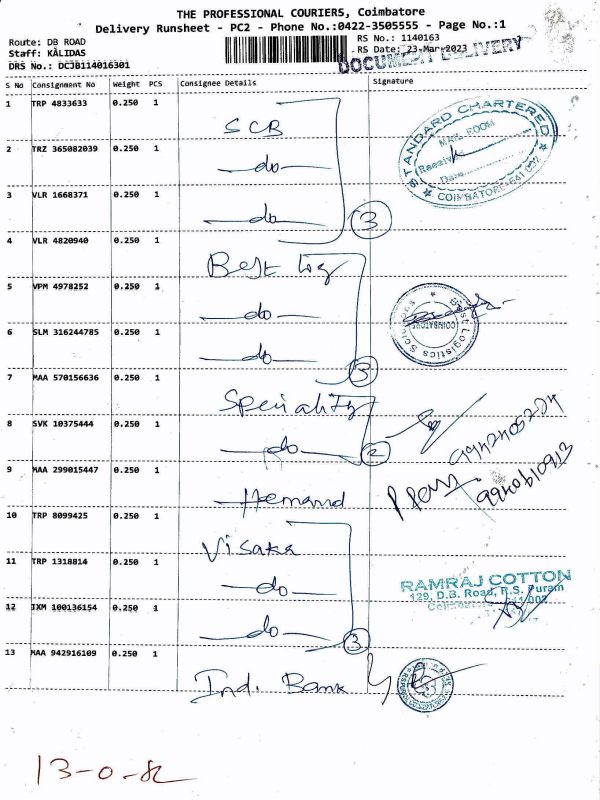 THE PROFESSIONAL COURIERS, Coimbatore
Delivery Runsheet - PC2 - Phone No.:0422-3505555 - Page No.:1
Route: DB ROAD
RS No.: 1140163
Staff: KALIDAS
RS Date: 23-Mar-2023
DRS No.: DCJB114016301
DOCUMENT DELIVERY
S No Consignment No Weight PCS Consignee Details Signature
1 TRP 4833633 0.250 1
SCB
STANDARD CHARTERED
MAIL ROOM
Received
Date
COIMBATORE-641 002
2 TRZ 365082039 0.250 1
do
3 VLR 1668371 0.250 1
do
3
4 VLR 4820940 0.250 1
Best log
5 VPM 4978252 0.250 1
do
Best Logistics Solutions
COIMBATORE
6 SLM 316244785 0.250 1
do
3
7 MAA 570156636 0.250 1
Speciality
8 SVK 10375444 0.250 1
do
2
9 MAA 299015447 0.250 1
Hemand
10 TRP 8099425 0.250 1
Visaka
11 TRP 1318814 0.250 1
do
RAMRAJ COTTON
129, D.B. Road, R.S. Puram
12 IXM 100136154 0.250 1
do
3
13 MAA 942916109 0.250 1
Ind. Bank
13-0-82